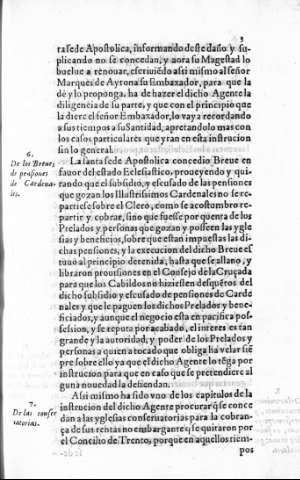 3
ta sede Apostolica, informando deste daño y su-
plicando no se concedan, y aora su Magestad lo
buelue a renouar, escriuiẽdo assi mismo al señor
Marques de Ayrona su Embaxador, para que la
dè y lo proponga, ha de hazer el dicho Agente la
diligencia de su parte, y que con el principio que
la diere el señor Embaxador, lo vaya recordando
a sus tiempos a su Santidad, apretando lo mas con
los casos particulares que yran en esta instrucion
sin lo general.
6.
De los Breues
de pẽsiones
de Cardena-
les.
La santa sede Apostolica concedio Breue en
fauor del estado Eclesiastico, proueyendo y qui-
tando que el subsidio, y escusado de las pensiones
que gozan los Illustrissimos Cardenales no se re-
partiesse sobre el Clero, como se acostumbro re-
partir y cobrar, sino que fuesse por quenta de los
Prelados y personas que gozan y posseen las ygle
sias y beneficios, sobre que estan impuestas las di-
chas pensiones, y la execucion del dicho Breue es
tuuo al principio detenida, hasta que se allano, y
libraron prouisiones en el Consejo de la Cruçada
para que los Cabildos no hiziessen desquẽtos del
dicho subsidio y escusado de pensiones de Carde
nales y que le paguen los dichos Prelados y bene-
ficiados, y aunque el negocio esta en pacifica pos-
session, y se reputa por acabado, el interes es tan
grande y la autoridad, y poder de los Prelados y
personas a quien a tocado que obliga ha velar siẽ
pre sobre ello ya que el dicho Agente lo tẽga por
instrucion para que en caso que se pretendiere al
guna nouedad la defiendan.
7.
De las conser
uatorias.
Assi mismo ha sido vno de los capitulos de la
instrucion del dicho Agente procurar q̃ se conce
dan a las yglesias conseruatorias para la cobran-
ça de sus rentas no embargante q̃ se quitaron por
el Concilio de Trento, porque en aquellos tiem-
pos